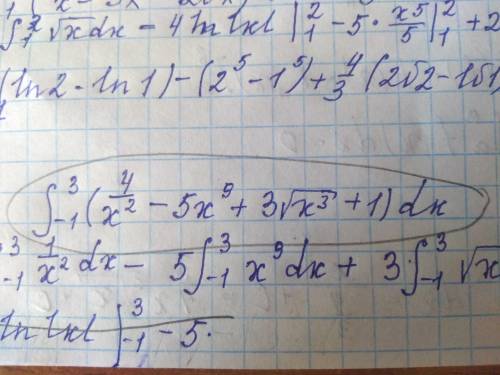 ∫₁² √x dx - 4 ln|x| |₁² - 5 · x⁵/5 |₁² + 2
(ln2 - ln1) - (2⁵ - 1⁵) + 4/3 (2√2 - 1√1)
∫₋₁³ (4/x² - 5x⁹ + 3√x³ + 1) dx
³₋₁ 1/x² dx - 5∫₋₁³ x⁹ dx + 3·∫₋₁³ √x
ln|x| |₋₁³ - 5·